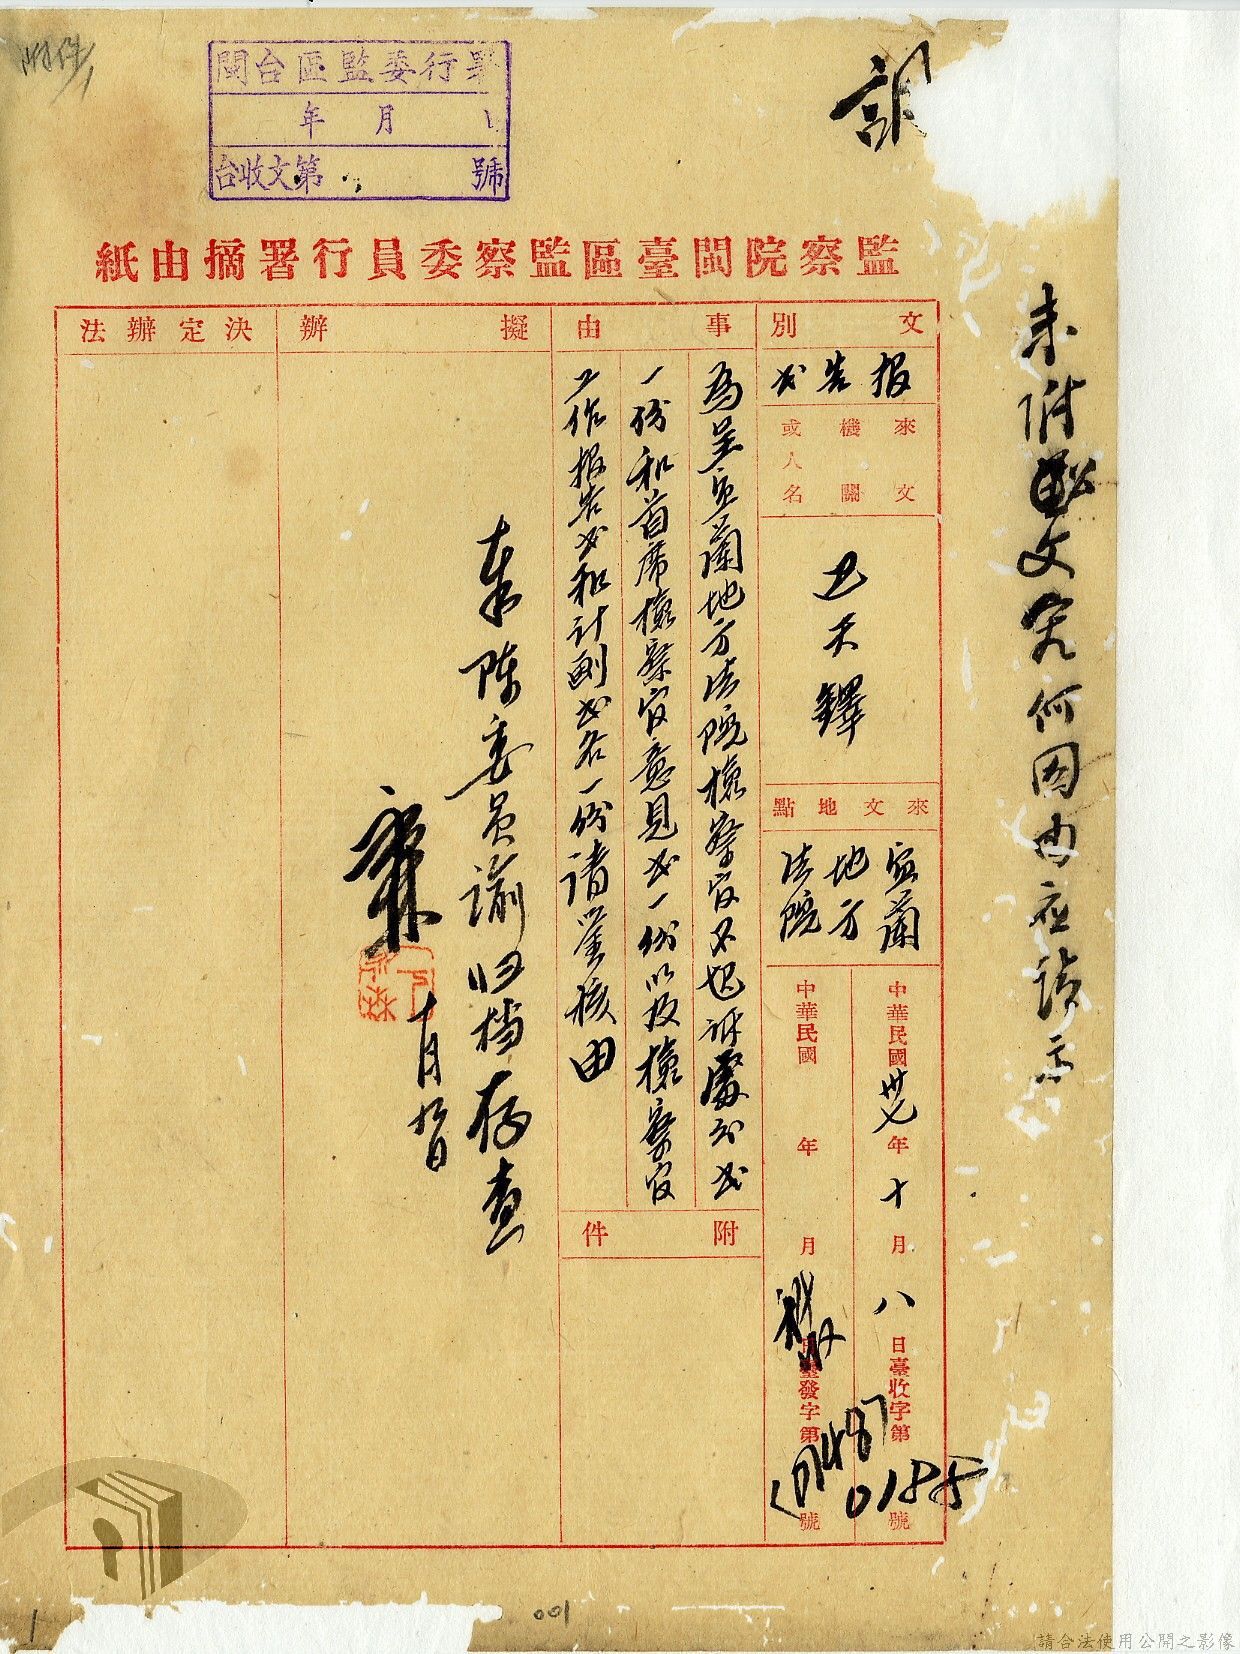 附件1
閩台區監委行署
年 月 日
台收文第 號
監察院閩臺區監察委員行署摘由紙
文別
報告書
來文機關或人名
尹天鐸
來文地點
宜蘭地方法院
中華民國卅七年十月八日臺收字第0185號
中華民國 年 月 日臺發字第 號
(01487
事由
為呈宜蘭地方法院檢察官不起訴處分書
一份和首席檢察官意見書一份以及檢察官
工作報告書和計劃書各一份請鑒核由
附件
擬辦
奉陳委員諭归檔存查
十月
決定辦法
文究何因由应請示
001
1
請合法使用公開之影像